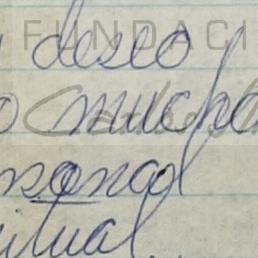 FUNDACI
deseo
o mucho
sonal
itual